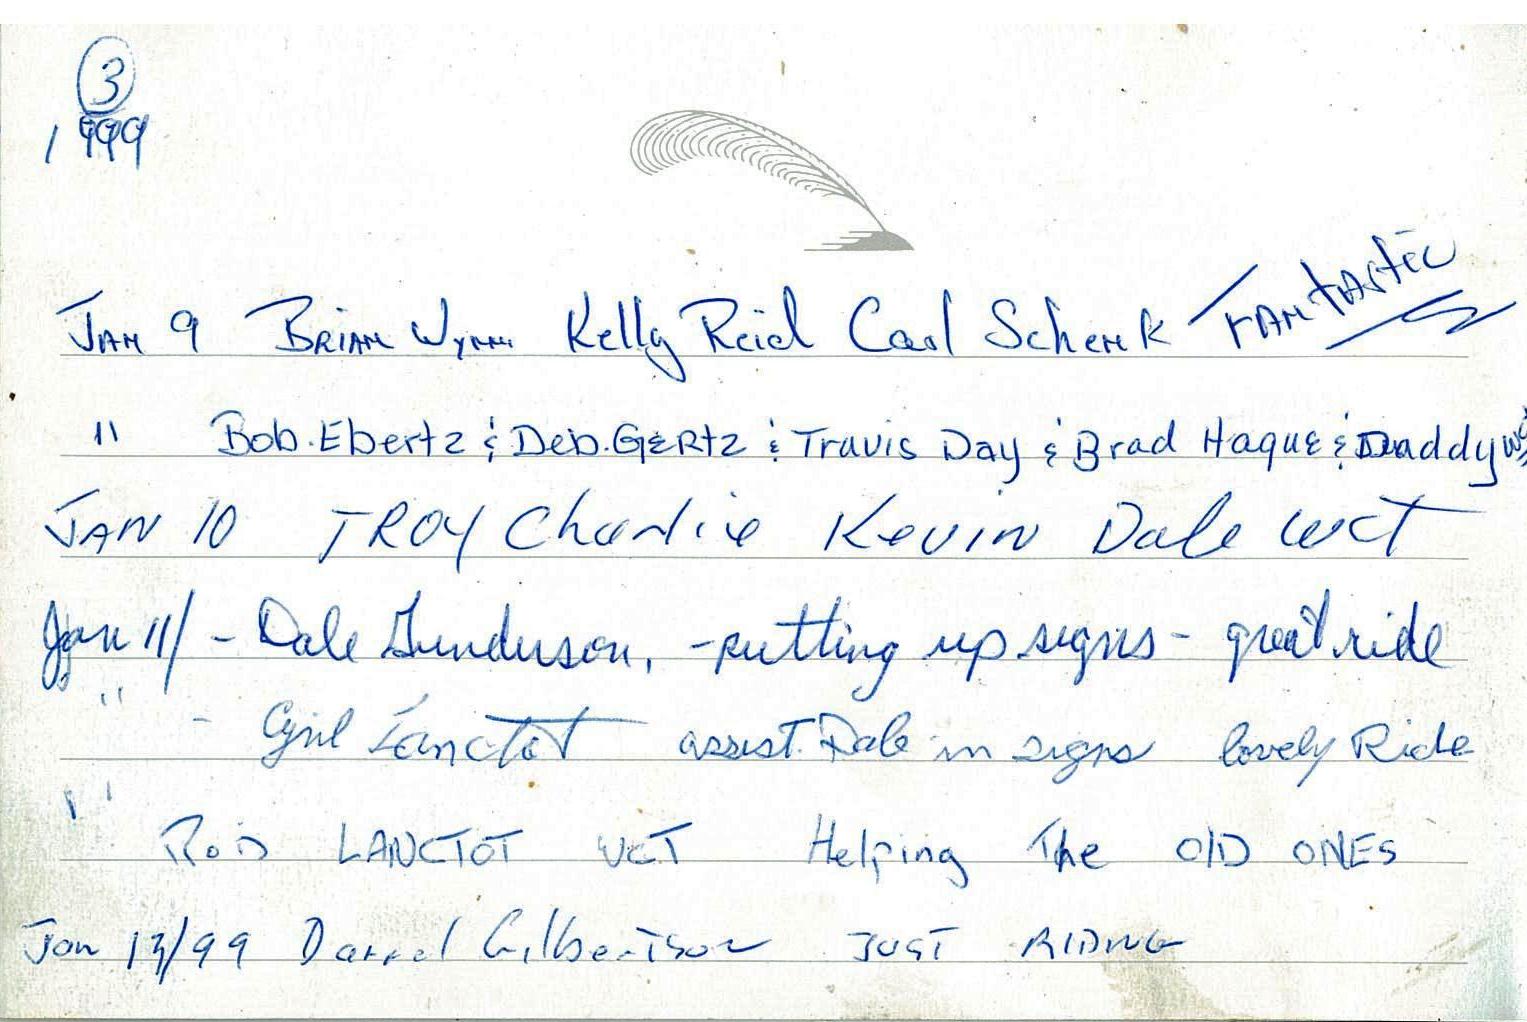 3
1999
Jan 9 Brian Wynn Kelly Reid Carl Schenk Fantastic
" Bob. Ebertz & Deb. Gertz & Travis Day & Brad Haque & Daddy
JAN 10 TROY Charlie Kevin Dale WCT
Jan 11/ - Dale Gunderson, - putting up signs - great ride
" - Cyril Lanctot assist. Dale in signs lovely Ride
" Rob LANCTOT WCT Helping The Old ONES
Jan 13/99 Darrel Gilbertson JUST RIDING